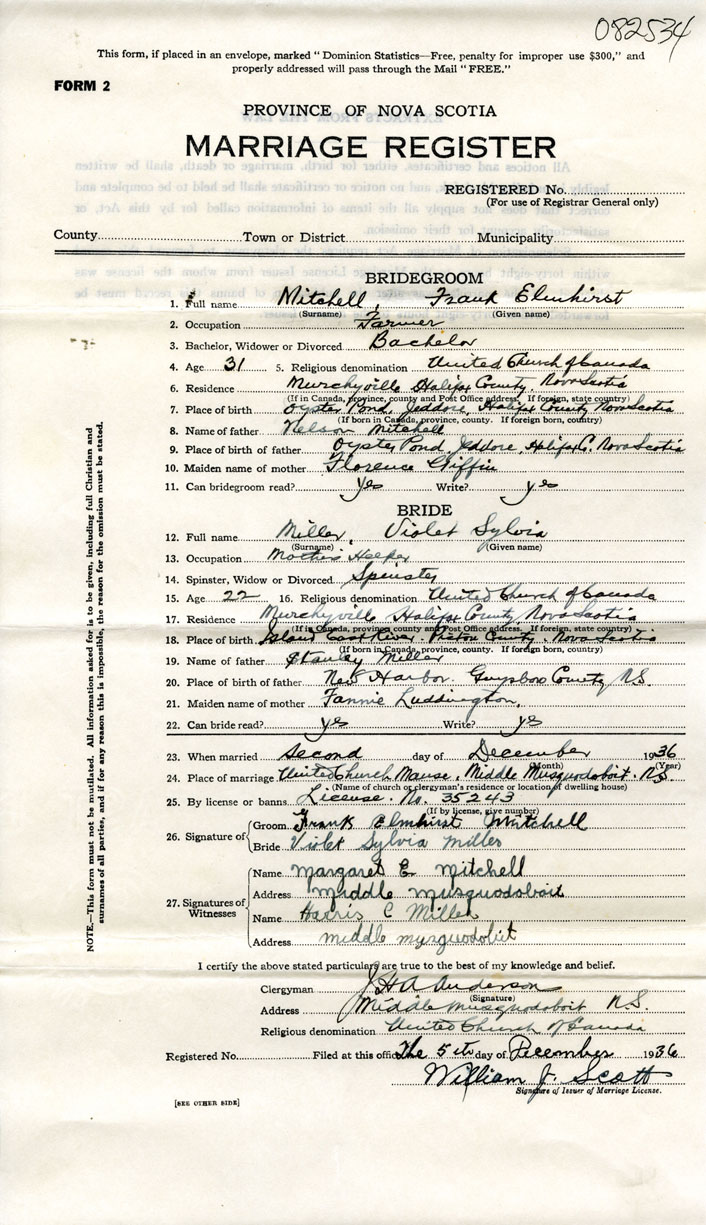 082534
This form, if placed in an envelope, marked " Dominion Statistics—Free, penalty for improper use $300," and
properly addressed will pass through the Mail " FREE."
FORM 2
PROVINCE OF NOVA SCOTIA
MARRIAGE REGISTER
REGISTERED No.
(For use of Registrar General only)
County Town or District Municipality
BRIDEGROOM
1. Full name Mitchell, Frank Elmhirst
(Surname) (Given name)
2. Occupation Farmer
3. Bachelor, Widower or Divorced Bachelor
4. Age 31 5. Religious denomination United Church of Canada
6. Residence Murchyville Halifax County, Nova Scotia
(If in Canada, province, county and Post Office address. If foreign, state country)
7. Place of birth Oyster Pond, Jeddore, Halifax County Nova Scotia
(If born in Canada, province, county. If foreign born, country)
8. Name of father Nelson Mitchell
9. Place of birth of father Oyster Pond, Jeddore, Halifax C. Nova Scotia
10. Maiden name of mother Florence Giffin
11. Can bridegroom read? yes Write? yes
BRIDE
12. Full name Miller, Violet Sylvia
(Surname) (Given name)
13. Occupation Mothers Helper
14. Spinster, Widow or Divorced Spinster
15. Age 22 16. Religious denomination United Church of Canada
17. Residence Murchyville Halifax County, Nova Scotia
(If in Canada, province, county and Post Office address. If foreign, state country)
18. Place of birth Island East River, Pictou County, Nova Scotia
(If born in Canada, province, county. If foreign born, country)
19. Name of father Stanley Miller
20. Place of birth of father New Harbor. Guysboro County, N.S.
21. Maiden name of mother Fannie Luddington,
22. Can bride read? yes Write? yes
23. When married Second day of December 1936
(Month) (Year)
24. Place of marriage United Church Manse, Middle Musquodoboit. N.S.
(Name of church or clergyman's residence or location of dwelling house)
25. By license or banns License. No. 35243
(If by license, give number)
26. Signature of Groom Frank Elmhirst Mitchell
Bride Violet Sylvia Miller
27. Signatures of Witnesses Name Margaret E Mitchell
Address Middle Musquodoboit
Name Harris C Miller
Address middle mysquodobit
I certify the above stated particulars are true to the best of my knowledge and belief.
Clergyman J H A Anderson
(Signature)
Address Middle Musquodoboit N.S.
Religious denomination United Church of Canada
Registered No. Filed at this office the 5th day of December 1936
William J. Scott
Signature of Issuer of Marriage License.
[SEE OTHER SIDE]
NOTE.—This form must not be mutilated. All information asked for is to be given, including full Christian and
surnames of all parties, and if for any reason this is impossible, the reason for the omission must be stated.